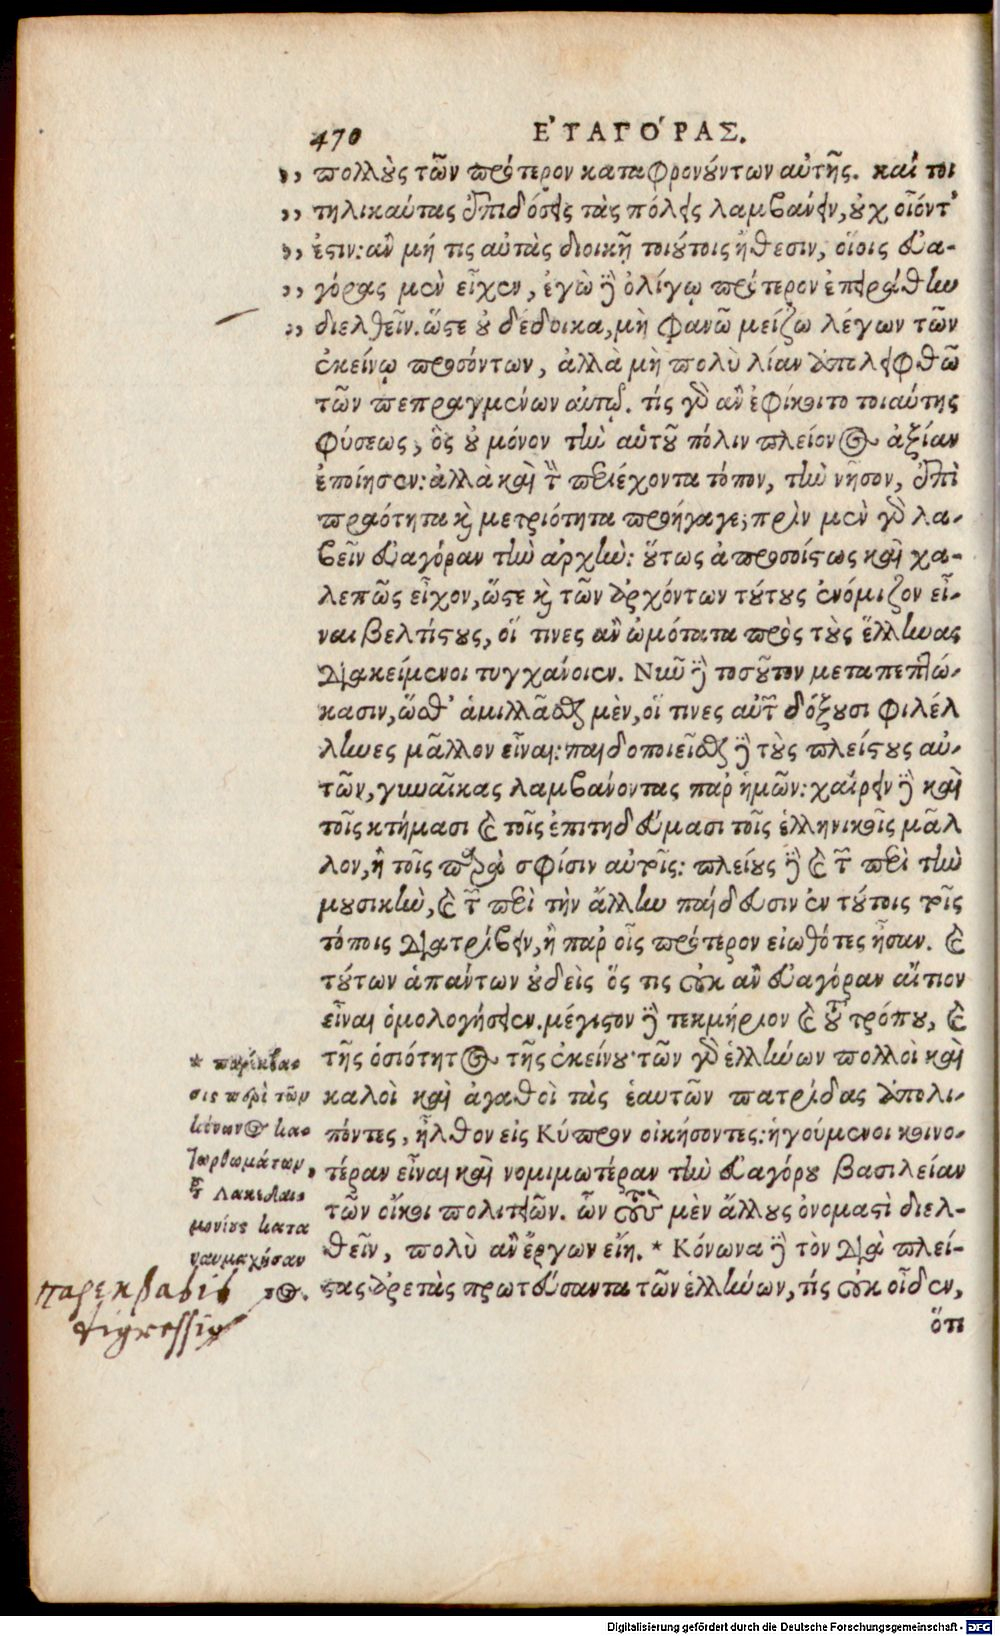 470 ΕΥ̓ΑΓΟ΄ΡΑΣ.
,, πολλοὺς τῶν πρότερον καταφρονούντων αὐτῆς. καί τοι
,, τηλικαύτας ἐπιδόσεις τὰς πόλεις λαμβάνειν, οὐχ οἷόντ'
,, ἐστιν: ἂν μή τις αὐτὰς διοικῇ τοιούτοις ἤθεσιν, οἵοις Εὐα-
,, γόρας μὲν εἶχεν, ἐγὼ δὲ ὀλίγῳ πρότερον ἐπειράθην
,, διελθεῖν. ὥστε οὐ δέδοικα, μὴ φανῶ μείζω λέγων τῶν
ἐκείνῳ προσόντων, ἀλλὰ μὴ πολὺ λίαν ἀπολειφθῶ
τῶν πεπραγμένων αὐτῷ. τίς γὰρ ἂν ἐφίκοιτο τοιαύτης
φύσεως, ὃς οὐ μόνον τὴν αὑτοῦ πόλιν πλείονος ἀξίαν
ἐποίησεν: ἀλλὰ καὶ τὸν περιέχοντα τόπον, τὴν νῆσον, ἐπὶ
πραότητα καὶ μετριότητα προήγαγε; πρὶν μὲν γὰρ λα-
βεῖν Εὐαγόραν τὴν ἀρχὴν: οὕτως ἀπροσοίστως καὶ χα-
λεπῶς εἶχον, ὥστε καὶ τῶν ἀρχόντων τούτους ἐνόμιζον εἶ-
ναι βελτίστους, οἵ τινες ἂν ὠμότατα πρὸς τοὺς ἕλληνας
διακείμενοι τυγχάνοιεν. Νῦν δὲ τοσοῦτον μεταπεπτώ-
κασιν, ὥσθ' ἁμιλλᾶσθαι μὲν, οἵ τινες αὐτῶν δόξουσι φιλέλ
ληνες μᾶλλον εἶναι: παιδοποιεῖσθαι δὲ τοὺς πλείστους αὐ-
τῶν, γυναῖκας λαμβάνοντας παρ' ἡμῶν: χαίρειν δὲ καὶ
τοῖς κτήμασι καὶ τοῖς ἐπιτηδεύμασι τοῖς ἑλληνικοῖς μᾶλ
λον, ἢ τοῖς παρὰ σφίσιν αὐτοῖς: πλείους δὲ καὶ τῶν περὶ τὴν
μουσικὴν, καὶ τῶν περὶ τὴν ἄλλην παίδευσιν ἐν τούτοις τοῖς
τόποις διατρίβειν, ἢ παρ' οἷς πρότερον εἰωθότες ἦσαν. καὶ
τούτων ἁπάντων οὐδεὶς ὅς τις οὐκ ἂν Εὐαγόραν αἴτιον
εἶναι ὁμολογήσειεν. μέγιστον δὲ τεκμήριον καὶ τοῦ τρόπου, καὶ
τῆς ὁσιότητος τῆς ἐκείνου· τῶν γὰρ ἑλλήνων πολλοὶ καὶ
καλοὶ καὶ ἀγαθοὶ τὰς ἑαυτῶν πατρίδας ἀπολι-
πόντες, ἦλθον εἰς Κύπρον οἰκήσοντες: ἡγούμενοι κοινο-
τέραν εἶναι καὶ νομιμωτέραν τὴν Εὐαγόρου βασιλείαν
τῶν οἴκοι πολιτειῶν. ὧν τοὺς μὲν ἄλλους ὀνομαστὶ διελ-
θεῖν, πολὺ ἂν ἔργων εἴη. * Κόνωνα δὲ τὸν διὰ πλεί-
στας ἀρετὰς πρωτεύσαντα τῶν ἑλλήνων, τίς οὐκ οἶδεν,
ὅτι
* παρέκβα-
σις περὶ τῶν
κόνωνος κα-
τορθωμάτων,
τοῦ Λακεδαι-
μονίους κατα
ναυμαχήσαν
τος.
παρεκβασις
digressio
Digitalisierung gefördert durch die Deutsche Forschungsgemeinschaft - DFG